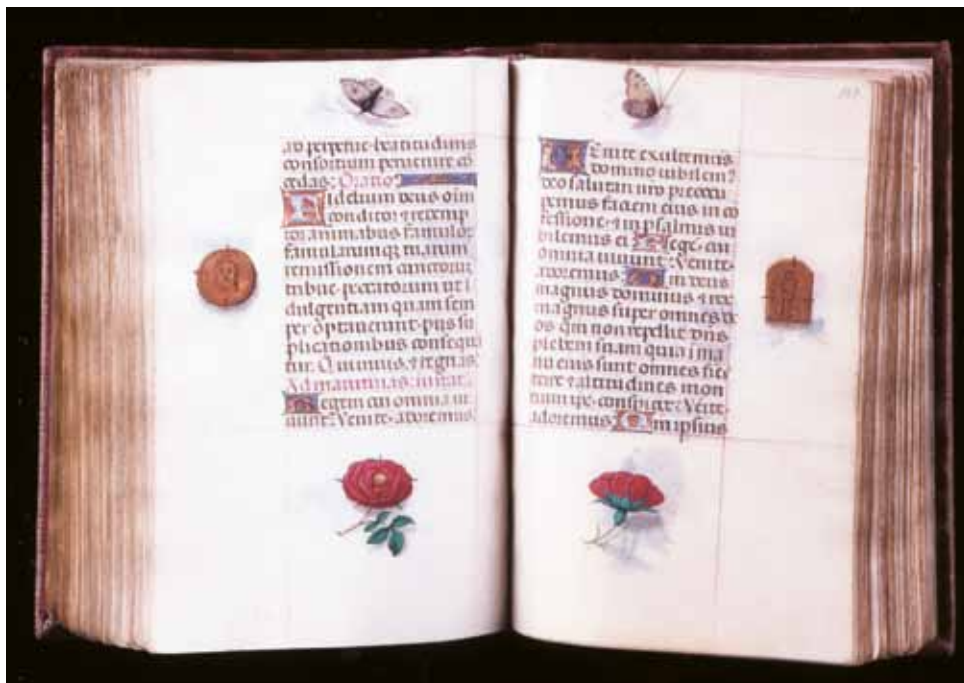 ad perpetue beatitudinis
consortium peruenire co
cedas: Oratio
Fidelium deus oim
conditor ⁊ redemp
tor animabus famulor
famularum q tuarum
remissionem cunctorum
tribue peccatorum ut i
dulgentiam quam sem
per optauerunt piis su
plicationibus consequ
tur. Qui uiuis ⁊ regnas.
Ad matutinas: inuitat.
Regem cui omnia ui
uunt: Venite adoremus.
Uenite exultemus
domino iubilem?
deo salutari nro preoccu
pemus faciem eius in co
fessione ⁊ in psalmis iu
bilemus ei Regē cui
omnia uiuunt: Venite
adoremus. Qm deus
magnus dominus ⁊ rex
magnus super omnes de
os qm non repellit dns
plebem suam quia i ma
nu eius sunt omnes fies
terre ⁊ altitudines mon
tium ipe conspicit: Venite
adoremus. Qm ipsius